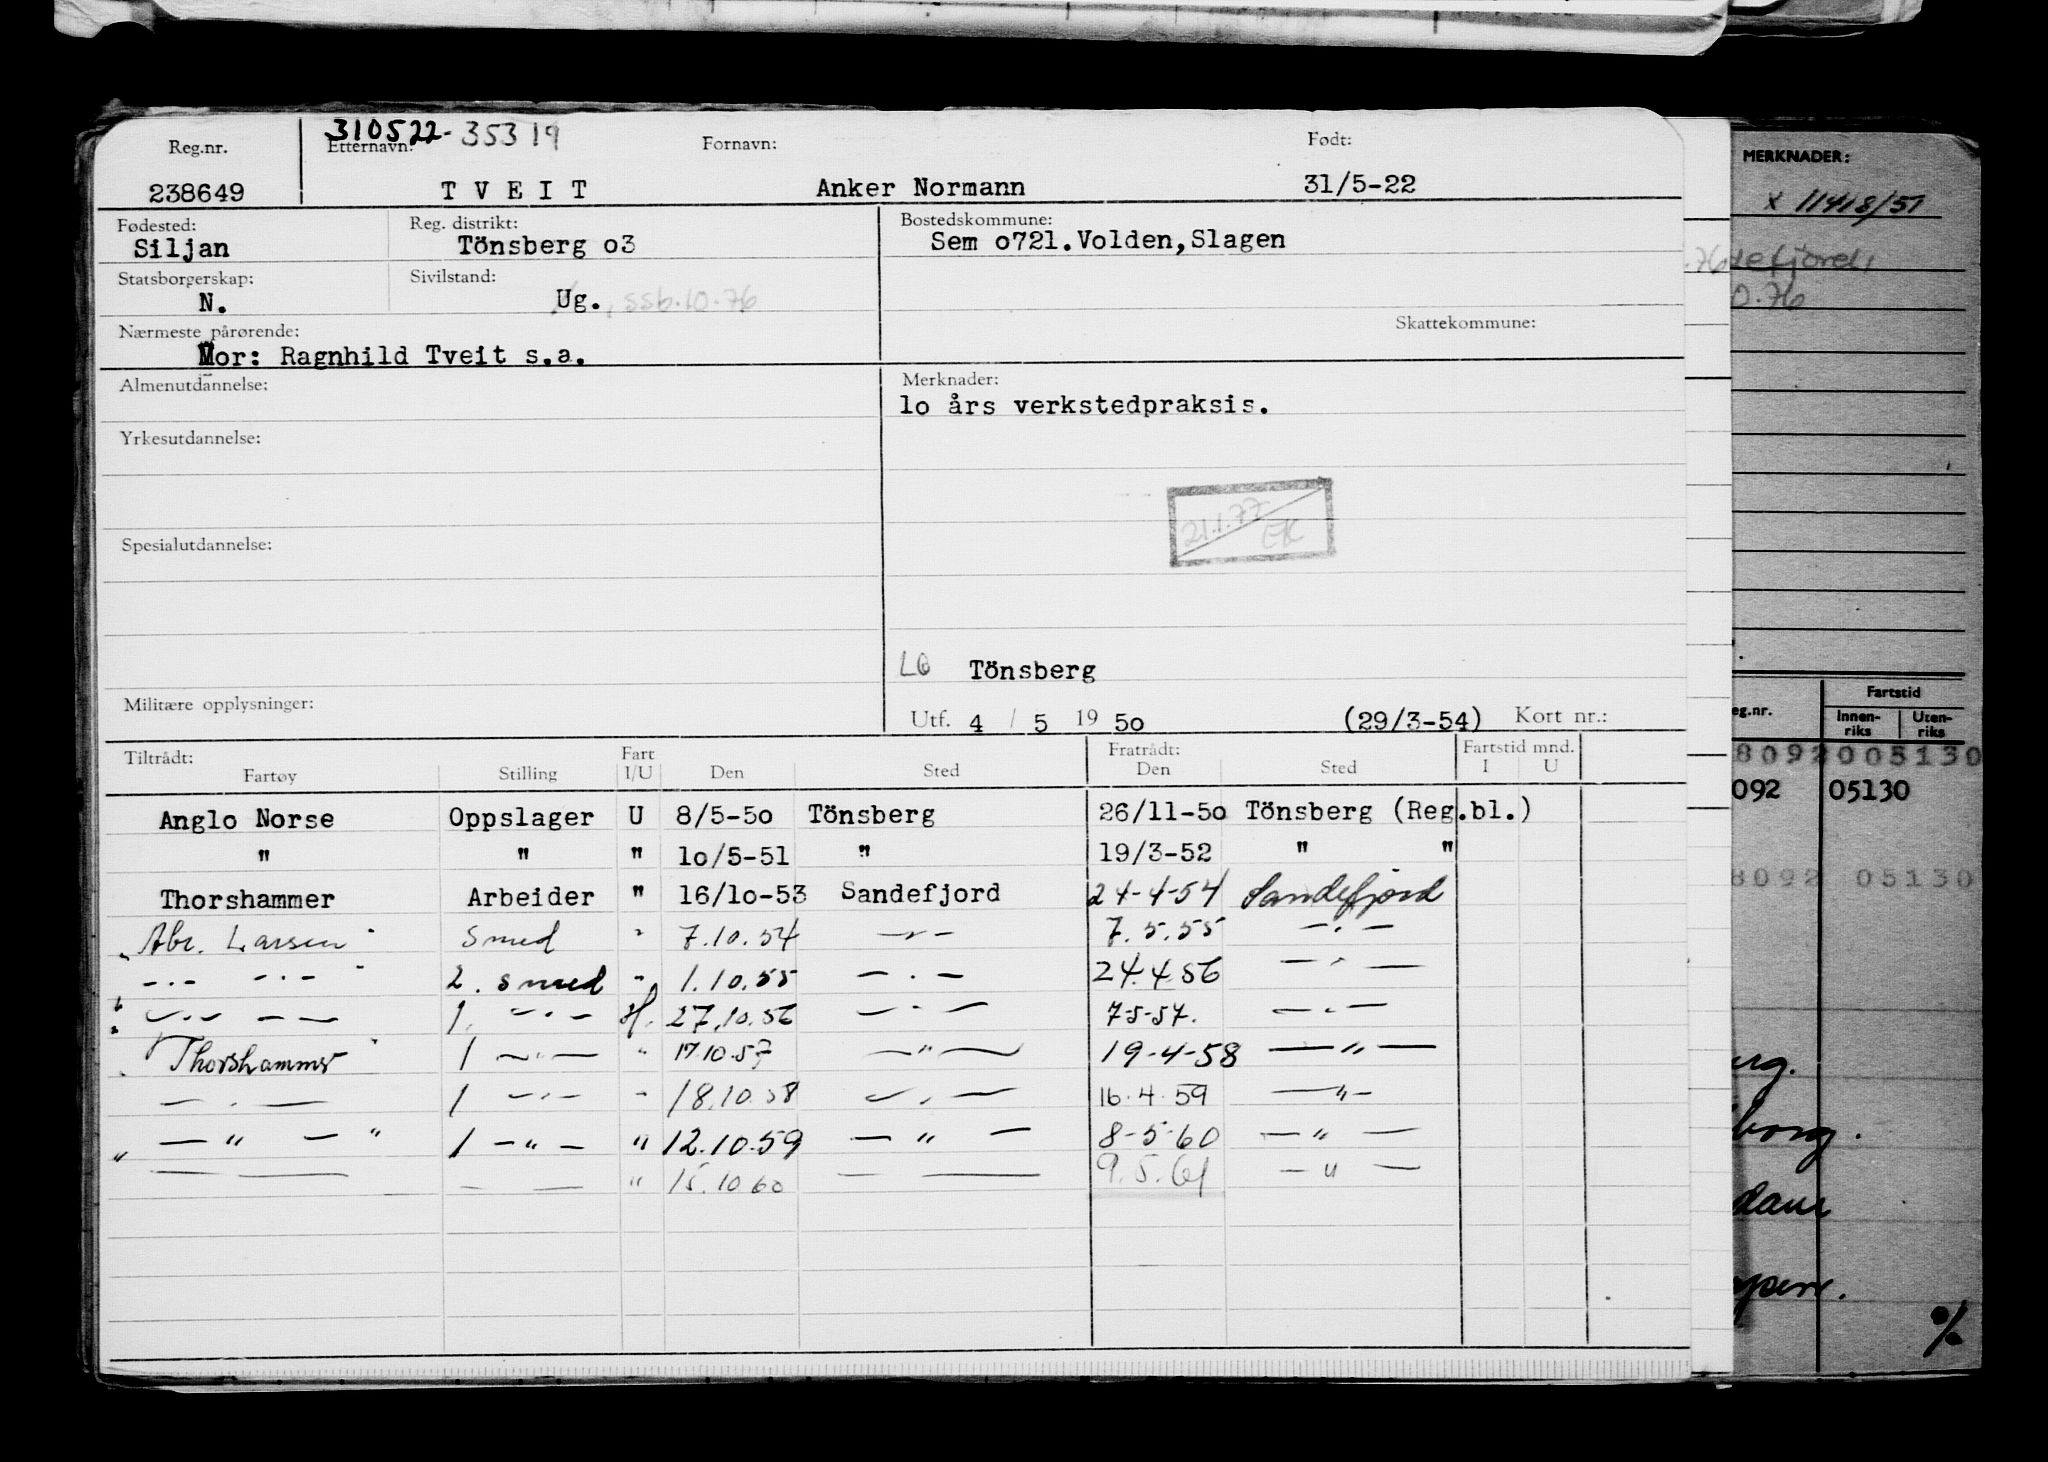 310522-35319
Reg.nr. Etternavn: Fornavn: Født:
238649 TVEIT Anker Normann 31/5-22
Fødested: Reg. distrikt: Bostedskommune:
Siljan Tönsberg o3 Sem o721.Volden,Slagen
Statsborgerskap: Sivilstand:
N. Ug. , ssb.10.76
Nærmeste pårørende: Skattekommune:
Mor: Ragnhild Tveit s.a.
Almenutdannelse: Merknader:
lo års verkstedpraksis.
Yrkesutdannelse:
21.1.77
EK
Spesialutdannelse:
Tönsberg
Militære opplysninger: Utf. 4 / 5 19 50 (29/3-54) Kort nr.:
Tiltrådt: Fart Fratrådt: Fartstid mnd.
Fartøy Stilling I/U Den Sted Den Sted I U
Anglo Norse Oppslager U 8/5-5o Tönsberg 26/11-5o Tönsberg (Reg.bl.)
" " " lo/5-51 " 19/3-52 " "
Thorshammer Arbeider " 16/lo-53 Sandefjord 24-4-54 Sandefjord
Abr. Larsen Smed " 7.10.54 — " — 7.5.55 — " —
— " — — " — 2. smed " 1.10.55 — " — 24.4.56 — " —
— " — — — 1. — " — H. 27.10.56 — " — 7-5-57. — " —
Thorshammer 1 — " — " 17.10.57 — " — 19-4-58 — " —
— " — 1 — " — " 18.10.58 — " — 16.4.59 — " —
— " — " 1 — " — " 12.10.59 — " — 8-5-60 — " —
— — — — " 15.10 60 — — 9.5.61 — " —
MERKNADER:
x 11418/51
efjord,
0.76
eg.nr. Fartstid
Innen-riks Uten-riks
8092005130
092 05130
8092 05130
%